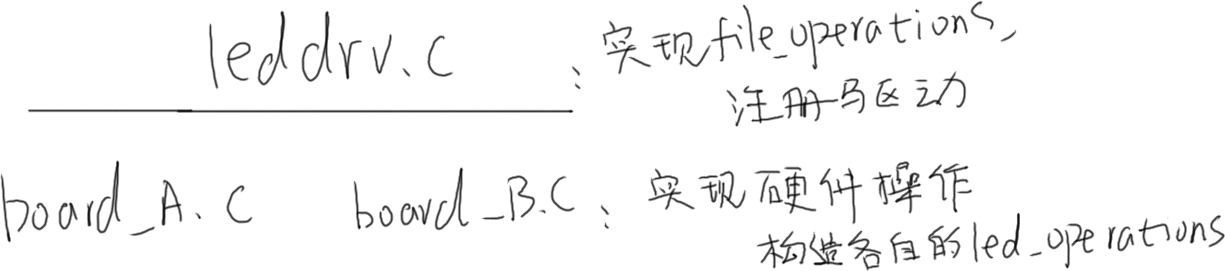 leddrv.c : 实现file_operations,
注册驱动
board_A.c board_B.c : 实现硬件操作
构造各自的led_operations